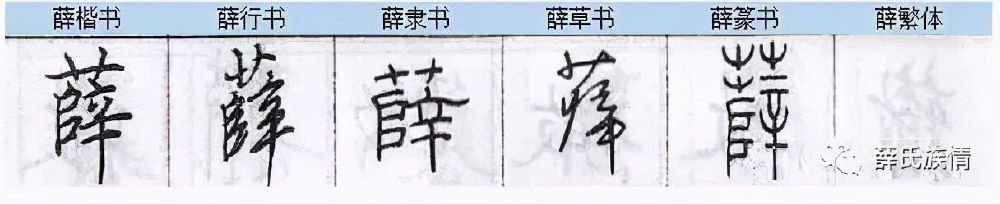 薛楷书 薛行书 薛隶书 薛草书 薛篆书 薛繁体
薛 薛 薛 薛 薛
薛氏族倩